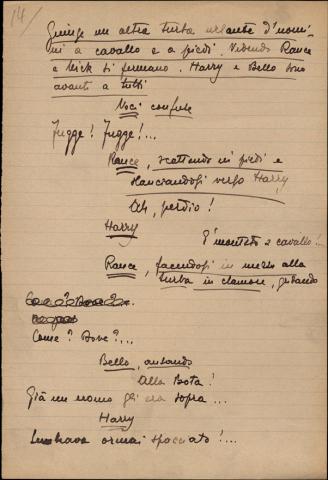 14/
Giunge un'altra turba urlante d'uomi-
ni a cavallo e a piedi. Vedendo Rance
e Nick si fermano. Harry e Bello sono
avanti a tutti
Voci confuse
Fugge! Fugge!...
Rance, scattando in piedi e
slanciandosi verso Harry,
Ah, perdio!
Harry
È montato a cavallo!
Rance, facendosi in mezzo alla
turba in clamore, gridando
Come? Dove?...
Bello, ansando
Alla Bota!
Già un uomo gli era sopra...
Harry
Sembrava ormai spacciato!...